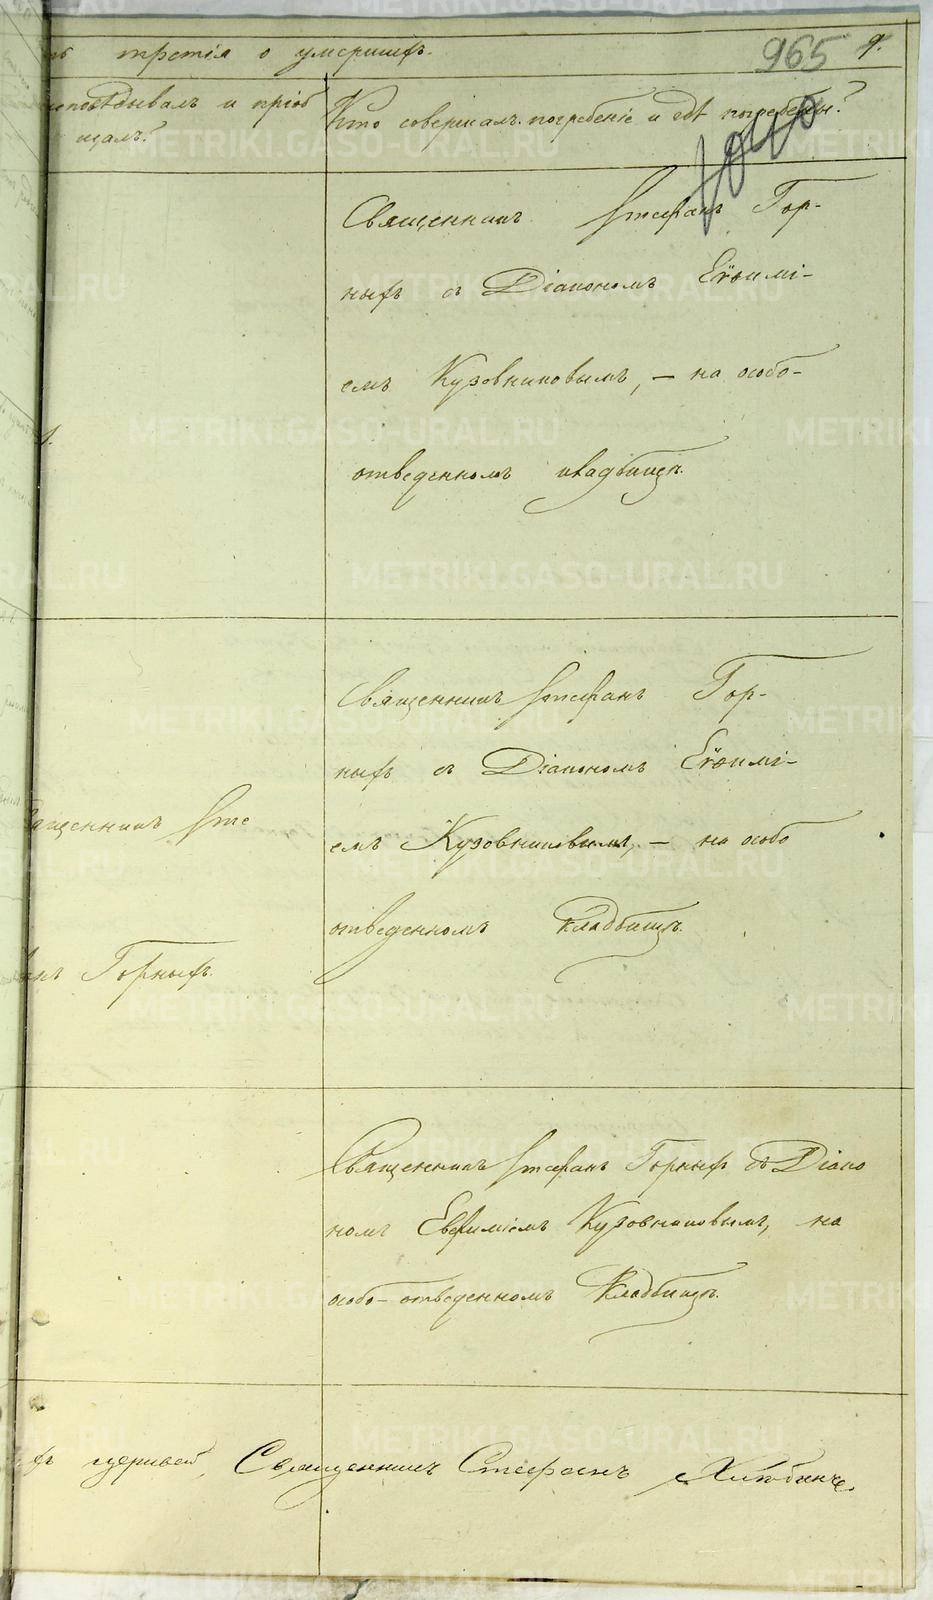 третія о умершихъ.
965
9.
исповѣдывалъ и пріоб
щалъ?
Кто совершалъ погребеніе и гдѣ погребены?
Священникъ Стефанъ Гор-
ныхъ съ Діакономъ Еѵѳимі-
емъ Кузовниковымъ, – на особо-
отведенномъ кладбищѣ.
Священникъ Стефанъ Гор-
ныхъ съ Діакономъ Еѵѳимі-
емъ Кузовниковымъ, – на особо
отведенномъ кладбищѣ.
Священникъ Сте
анъ Горныхъ.
Священникъ Стефанъ Горныхъ съ Діако
номъ Евфиміемъ Кузовниковымъ, на
особо-отведенномъ Кладбищѣ.
церквей, Священникъ Стефанъ Хлюбинче
METRIKI.GASO-URAL.RU